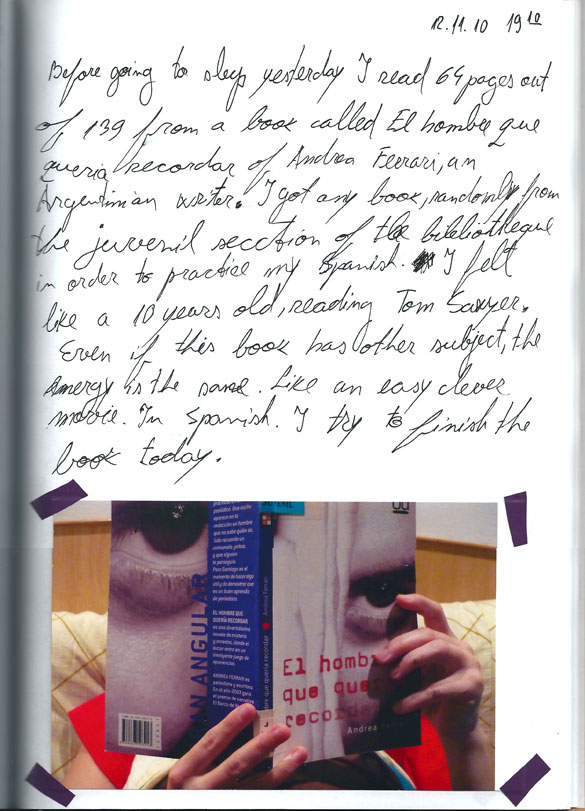 12.11.10 19¹⁰
Before going to sleep yesterday I read 64 pages out
of 139 from a book called El hombre que
quería recordar of Andrea Ferrari, an
Argentinian writer. I got any book, randomly from
the juvenil secction of the bibliotheque
in order to practice my Spanish. I felt
like a 10 years old, reading Tom Sawyer.
Even if this book has other subject, the
energy is the same. Like an easy clever
movie. In Spanish. I try to finish the
book today.
periodista. Una noche
aparece en la
redacción un hombre
que no sabe quién es.
Solo recuerda un
gritos,
y que alguien
le perseguía.
Para Santiago es el
momento de hacer algo
útil y de demostrar que
es un buen aprendiz
de periodista.
EL HOMBRE QUE
QUERÍA RECORDAR
es una divertidísima
novela de misterio
y enredos, donde el
lector entra en un
inteligente juego de
apariencias.
ANDREA FERRARI es
periodista y escritora.
En el año 2003 ganó
el premio de narrativa
El Barco de
AN ANGULAR
que quería recordar
Andrea Ferrari
El homb
que que
record
Andrea